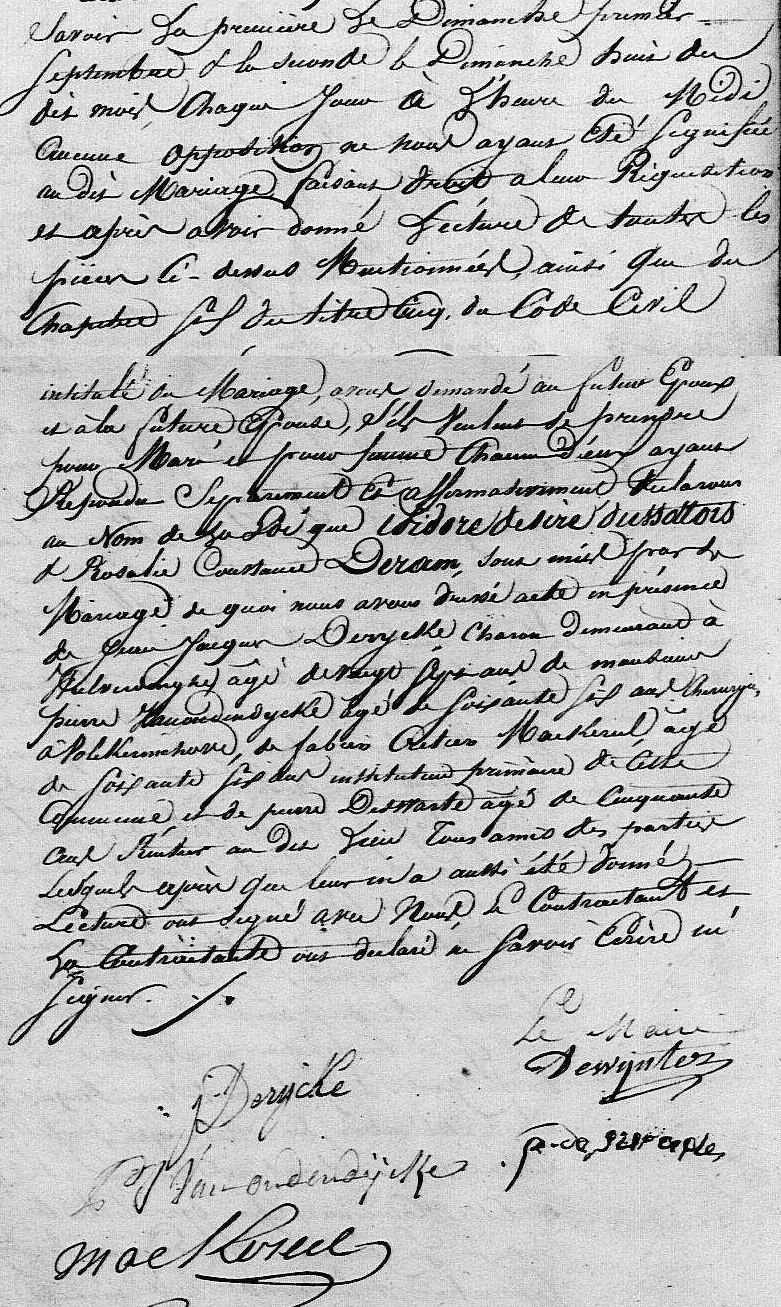 Savoir La premiere Le Dimanche premier
Septembre & la seconde le Dimanche huit du
dit mois Chaque Jour à L'heure du Midi
Aucune opposition ne nous ayant été Signifiée
au dit Mariage, faisant droit a leur Requisition
et après avoir donné Lecture de toutes les
pieces Ci-dessus Mentionnées, ainsi que du
Chapitre six du titre Cinq. du Code Civil
intitulé du Mariage, avons demandé au futur Epoux
et à la future Epouse, s'ils veulent se prendre
pour Mari et pour femme Chacun d'eux ayant
Repondu Separement & affirmativement declarons
au Nom de La Loi que isidore desire dussallois
& Rosalie Constance Deram, sont unis par le
Mariage de quoi nous avons dressé acte en présence
de Jean Jacques Derycke Charon demeurant à
âgé de vingt sept ans de
pierre Vanoudendycke âgé de soixante six ans Chirurgien
à Volkerinchove, de fabien Mackereel âgé
de soixante six ans instituteur primaire de Cette
Commune et de pierre Deswarte âgé de Cinquante
ans Rentier au dit Lieu Tous amis des parties
Lesquels après que leur en a aussi été donné
Lecture ont signé avec Nous Le Contractant et
La Contractante ont declaré ne Savoir Ecrire ni
Signer.
Le Maire
Dewynter
J Derycke
Vanoudendycke
Mackereel